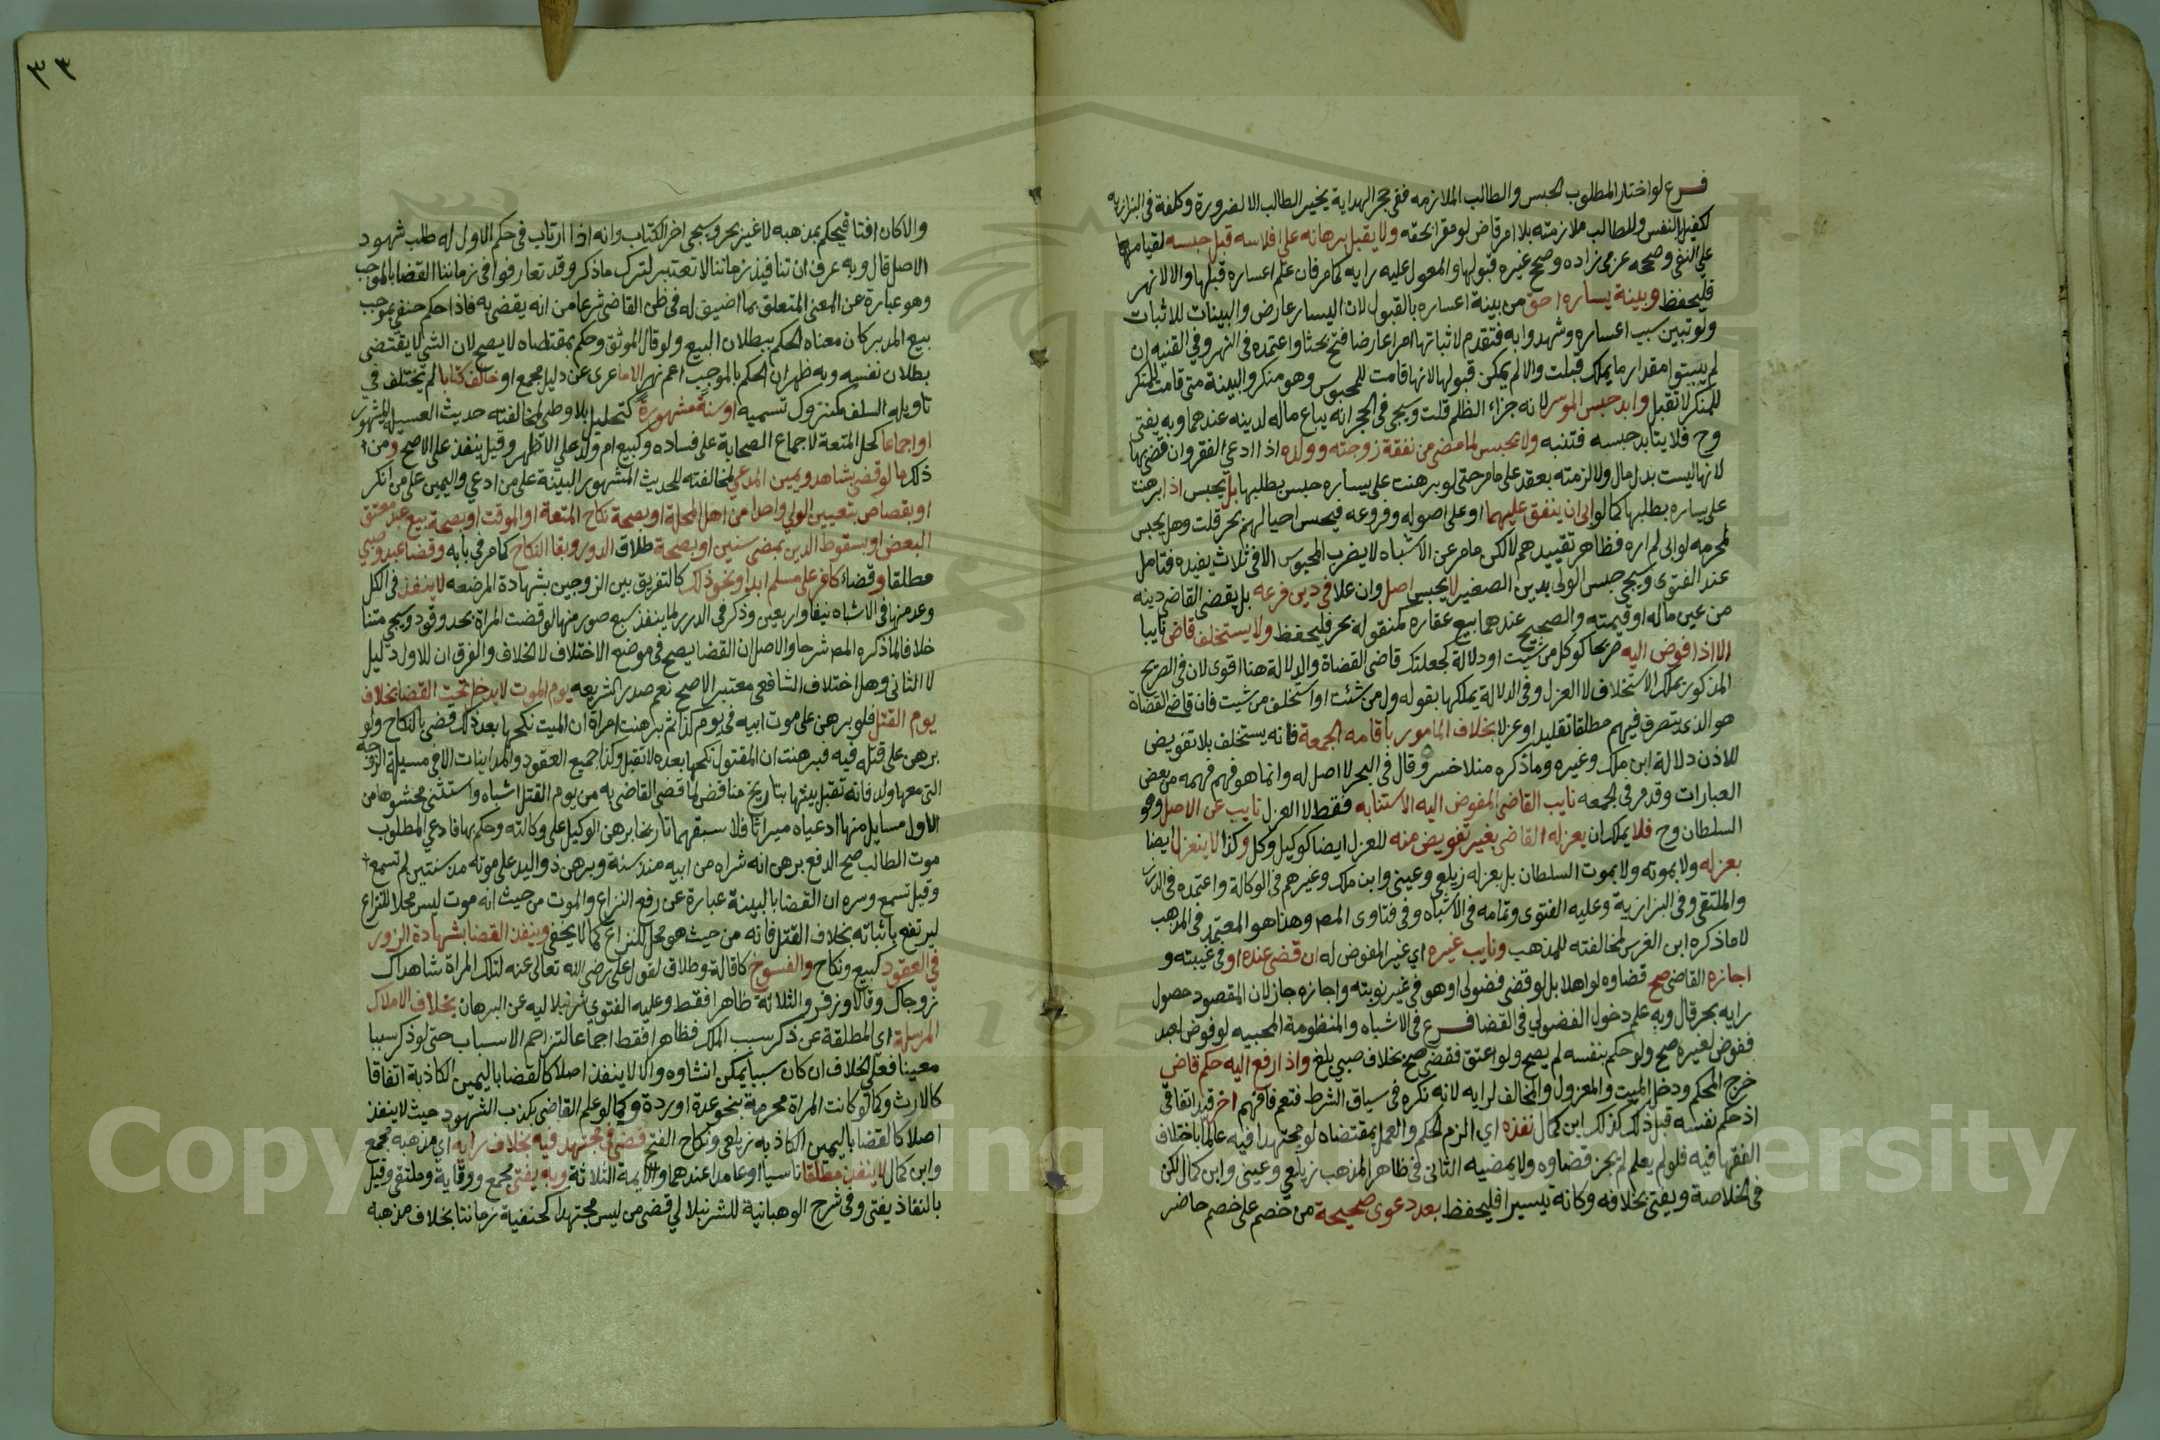 فرع لو اختار المطلوب الحبس والطالب الملازمه ففي حجر الهداية يخير الطالب الا لضرورة وكلفة في البزازيه
لكفيل النفس وللطالب ملازمته بلا امر قاض لو مقرا بحقه ولا يقبل برهانه على افلاسه قبل حبسه لقيامها
على النفي وصححه عزمى زاده وصحح غيره قبولها والمعول عليه رايه كما مر فان علم اعساره قبلها والا لا نهر
فليحفظ وبينة يساره احق من بينة اعساره بالقبول لان اليسار عارض والبينات للاثبات
ولو تبين سبب اعساره وشهدوا به فتقدم لاثباتها امرا عارضا فتح بحثا واعتمده في النهر وفي القنيه ان
لم يبينوا مقدار ما يملك قبلت والا لم يمكن قبولها لانها قامت للمحبوس وهو منكر والبينة متى قامت للمنكر
للمنكر لا تقبل وابد حبس الموسر لانه جزاء الظلم قلت ويجي في الحجر انه يباع ماله لدينه عندهما وبه يفتى
وح فلا يتابد حبسه فتنبه ولا يحبس لما مضى من نفقة زوجته وولده اذا ادعى الفقر وان قضى بها
لانها ليست بدل مال ولا لزمته بعقد على ما مر حتى لو برهنت على يساره حبس بطلبها بل يحبس اذا برهنت
على يساره بطلبها كما لو ابى ان ينفق عليهما او على اصوله وفروعه فيحبس احيا لهم بحر قلت وهل يحبس
لمحرمه لو ابى لم اره فظاهر تقييدهم لا لكن ما مر عن الاشباه لا يضرب المحبوس الا في ثلاث يفيده فتامل
عند الفتوى ويجي حبس الولى بدين الصغير لا يحبس اصل وان علا في دين فرعه بل يقضى القاضى دينه
من عين ماله او قيمته والصحيح عندهما بيع عقاره كمنقوله بحر فليحفظ ولا يستخلف قاض نايبا
الا اذا فوض اليه صريحا كوكل من شيت او دلالة كجعلتك قاضى القضاة والدلالة هنا اقوى لان في الصريح
المذكور يملك الاستخلاف لا العزل وفي الدلالة يملكها بقوله ول من شئت او استخلف من شيت فان قاضى القضاة
هو الذى يتصرف فيهم مطلقا تقليدا وعزلا بخلاف المامور باقامه الجمعة فانه يستخلف بلا تفويض
للاذن دلالة ابن ملك وغيره وما ذكره منلا خسرو قال في البحر لا اصل له وانما هو فهم فهمه من بعض
العبارات وقد مر في الجمعه نايب القاضى المفوض اليه الاستنابه فقط لا العزل نايب عن الاصل وهو
السلطان وح فلا يملك ان يعزله القاضى بغير تفويض منه للعزل ايضا كوكيل وكل وكذا لا ينعزل ايضا
بعزله ولا بموته ولا بموت السلطان بل بعزله زيلعى وعينى وابن ملك وغيرهم في الوكالة واعتمده في الدرر
والملتقى وفي البزازية وعليه الفتوى وتمامه في الاشباه وفي فتاوى المص وهذا هو المعتمد في المذهب
لا ما ذكره ابن الغرس لمخالفته للمذهب ونايب غيره اي غير المفوض له ان قضى عنده او في غيبته و
اجازه القاضى صح قضاوه لو اهلا بل لو قضى فضولى او هو في غير نوبته واجازه جاز لان المقصود حصول
رايه بحر قال وبه علم دخول الفضولي في القضا فرع في الاشباه والمنظومة المحبيه لو فوض لعبد
ففوض لغيره صح ولو حكم بنفسه لم يصح ولو اعتق فقضى صح بخلاف صبي بلغ واذا رفع اليه حكم قاض
خرج المحكم ودخل الميت والمعزول والمخالف لرايه لانه نكره في سياق الشرط فتعم فافهم اخر قيد اتفاقي
اذ حكم نفسه قبل ذلك كذلك ابن كمال نفذه اي الزم الحكم والعمل بمقتضاه لو مجتهدا فيه عالما باختلاف
الفقها فيه فلو لم يعلم لم يجز قضاوه ولا يمضيه الثانى في ظاهر المذهب زيلعي وعينى وابن كمال لكن
في الخلاصة ويفتى بخلافه وكانه تيسيرا فليحفظ بعد دعوى صحيحة من خصم على خصم حاضر
٣٣
والا كان افتا فيحكم بمذهبه لا غير بحر وسيجى اخر الكتاب وانه اذا ارتاب في حكم الاول له طلب شهود
الاصل قال وبه عرف ان تنافيذ زماننا لا تعتبر لترك ما ذكر وقد تعارفوا في زماننا القضا بالموجب
وهو عبارة عن المعنى المتعلق بما اضيف له في ظن القاضى شرعا من انه يقضى به فاذا حكم حنفي بموجب
بيع المدبر كان معناه الحكم ببطلان البيع ولو قال الموثق وحكم بمقتضاه لا يصح لان الشي لا يقتضى
بطلان نفسه وبه ظهر ان الحكم بالموجب اعم نهر الا ما عرى عن دليل مجمع او خالف كتابا لم يختلف في
تاويله السلف كمتروك تسميه او سنة مشهورة كتحليل بلا وطى لمخالفته حديث العسيله المشهور
او اجماعا كحل المتعة لاجماع الصحابة على فساده وكبيع ام ولد على الاظهر وقيل ينفذ على الاصح ومن
ذلك ما لو قضى بشاهد ويمين المدعي لمخالفته للحديث المشهور البينة على من ادعي واليمين على من انكر
او بقصاص بتعيين الولي واحدا من اهل المحلة او بصحة نكاح المتعة او الموقت او بصحة بيع عبد معتق
البعض او بسقوط الدين بمضي سنين او بصحة طلاق الدور وبقا النكاح كما مر في بابه وقضا عبد وصبي
مطلقا وقضاء كافر على مسلم ابدا ونحو ذلك كالتفريق بين الزوجين بشهادة المرضعه لا ينفذ في الكل
وعد منها في الاشباه نيفا واربعين وذكر في الدرر لما ينفذ سبع صور منها لو قضت المراة بحد وقود ويجي متنا
خلافا لما ذكره المص شرحا والاصل ان القضا يصح في موضع الاختلاف لا الخلاف والفرق ان للاول دليل
لا الثانى وهل اختلاف الشافعى معتبر الاصح نعم صدر الشريعه يوم الموت لا يدخل تحت القضا بخلاف
يوم القتل فلو برهن على موت ابيه في يوم كذا ثم برهنت امراة ان الميت نكحها بعد ذلك قضى بالنكاح ولو
برهن على قتله فيه فبرهنت ان المقتول نكحها بعده لا تقبل وكذا جميع العقود والمداينات الا في مسيلة الزوجة
التى معها ولد فانه تقبل بينتها بتاريخ مناقض لما قضى القاضى به من يوم القتل اشباه واستثنى محشوها من
الاول مسايل منها ادعياه ميراثا فلاسبقهما تاريخا برهن الوكيل على وكالته وحكم بها فادعي المطلوب
موت الطالب صح الدفع برهن انه شراه من ابيه منذ سنة وبرهن ذو اليد على موته مذ سنتين لم تسمع
وقيل تسمع وسره ان القضا بالبينة عبارة عن رفع النزاع والموت من حيث انه موت ليس محلا للنزاع
ليرتفع باثباته بخلاف القتل فانه من حيث هو محل للنزاع كما لا يخفى وينفذ القضا بشهادة الزور
في العقود كبيع ونكاح والفسوخ كاقالة وطلاق لقول على رضي الله تعالى عنه لتلك المراة شاهداك
زوجاك وقالا وزفر والثلاثة ظاهرا فقط وعليه الفتوى شرنبلاليه عن البرهان بخلاف الاملاك
المرسلة اي المطلقة عن ذكر سبب الملك فظاهرا فقط اجماعا لتزاحم الاسباب حتى لو ذكر سببا
معينا فعلى الخلاف ان كان سببا يمكن انشاوه والا لا ينفذ اصلا كالقضا باليمين الكاذبة اتفاقا
كالارث وكما لو كانت المراة محرمة بنحو عدة او ردة وكما لو علم القاضى بكذب الشهود حيث لا ينفذ
اصلا كالقضا باليمين الكاذبه زيلعى ونكاح الفتح قضى في مجتهد فيه بخلاف رايه اي مذهبه مجمع
وابن كمال لا ينفذ مطلقا ناسيا او عامدا عندهما والايمة الثلاثة وبه يفتى مجمع ووقاية وملتقى وقيل
بالنفاذ يفتى وفي شرح الوهبانية للشرنبلالي قضى من ليس مجتهدا كحنفية زماننا بخلاف مذهبه
Copyright © King Saud University